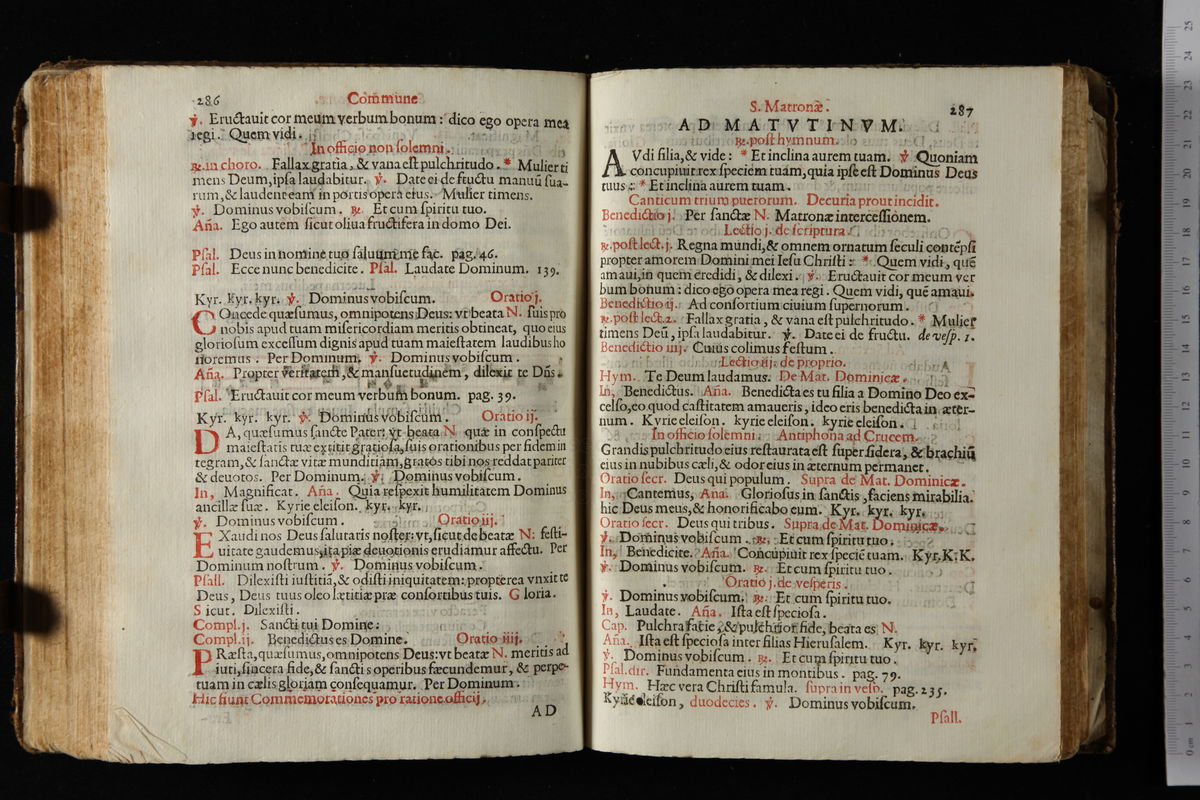 286
Com̃mune
℣. Eructauit cor meum verbum bonum: dico ego opera mea
regi. Quem vidi.
In officio non ſolemni.
℟. in choro. Fallax gratia, & vana eſt pulchritudo. * Mulier ti
mens Deum, ipſa laudabitur. ℣. Date ei de fructu manuũ ſua-
rum, & laudent eam in portis opera eius. Mulier timens.
℣. Dominus vobiſcum. ℟. Et cum ſpiritu tuo.
Aña. Ego autem ſicut oliua fructifera in domo Dei.
Pſal. Deus in nomine tuo ſaluum me fac. pag. 46.
Pſal. Ecce nunc benedicite. Pſal. Laudate Dominum. 139.
Kyr. kyr. kyr. ℣. Dominus vobiſcum. Oratio j.
COncede quæſumus, omnipotens Deus: vt beata N. ſuis pro
nobis apud tuam miſericordiam meritis obtineat, quo eius
glorioſum exceſſum dignis apud tuam maieſtatem laudibus ho
noremus. Per Dominum. ℣. Dominus vobiſcum.
Aña. Propter veritatem, & manſuetudinem, dilexit te Dñs.
Pſal. Eructauit cor meum verbum bonum. pag. 39.
Kyr. kyr. kyr. ℣. Dominus vobiſcum. Oratio ij.
DA, quæſumus ſancte Pater: vt beata N. quæ in conſpectu
maieſtatis tuæ extitit gratioſa, ſuis orationibus per fidem in
tegram, & ſanctæ vitæ munditiam, gratos tibi nos reddat pariter
& deuotos. Per Dominum. ℣. Dominus vobiſcum.
In, Magnificat. Aña. Quia reſpexit humilitatem Dominus
ancillæ ſuæ. Kyrie eleiſon. kyr. kyr.
℣. Dominus vobiſcum. Oratio iij.
EXaudi nos Deus ſalutaris noſter: vt, ſicut de beatæ N. feſti-
uitate gaudemus, ita piæ deuotionis erudiamur affectu. Per
Dominum noſtrum. ℣. Dominus vobiſcum.
Pſall. Dilexiſti iuſtitiã, & odiſti iniquitatem: propterea vnxit te
Deus, Deus tuus oleo lætitiæ præ conſortibus tuis. Gloria.
Sicut. Dilexiſti.
Compl. j. Sancti tui Domine:
Compl. ij. Benedictus es Domine. Oratio iiij.
PRæſta, quæſumus, omnipotens Deus: vt beatæ N. meritis ad
iuti, ſincera fide, & ſanctis operibus fæcundemur, & perpe-
tuam in cælis gloriam conſequamur. Per Dominum.
Hic fiunt Commemorationes pro ratione officij.
AD
S. Matronæ.
287
AD MATVTINVM.
℟. poſt hymnum.
AVdi filia, & vide: * Et inclina aurem tuam. ℣. Quoniam
concupiuit rex ſpeciem tuam, quia ipſe eſt Dominus Deus
tuus: * Et inclina aurem tuam.
Canticum trium puerorum. Decuria prout incidit.
Benedictio j. Per ſanctæ N. Matronæ interceſſionem.
Lectio j. de ſcriptura.
℟. poſt lect. j. Regna mundi, & omnem ornatum ſeculi contẽpſi
propter amorem Domini mei Ieſu Chriſti: * Quem vidi, quẽ
amaui, in quem eredidi, & dilexi. ℣. Eructauit cor meum ver
bum bonum: dico ego opera mea regi. Quem vidi, quẽ amaui.
Benedictio ij. Ad conſortium ciuium ſupernorum.
℟. poſt lect. 2. Fallax gratia, & vana eſt pulchritudo. * Mulier
timens Deũ, ipſa laudabitur. ℣. Date ei de fructu. de veſp. 1.
Benedictio iij. Cuius colimus feſtum.
Lectio iij. de proprio.
Hym. Te Deum laudamus. De Mat. Dominicæ.
In, Benedictus. Aña. Benedicta es tu filia a Domino Deo ex-
celſo, eo quod caſtitatem amaueris, ideo eris benedicta in æter-
num. Kyrie eleiſon. kyrie eleiſon. kyrie eleiſon.
In officio ſolemni. Antiphona ad Crucem.
Grandis pulchritudo eius reſtaurata eſt ſuper ſidera, & brachiũ
eius in nubibus cæli, & odor eius in æternum permanet.
Oratio ſecr. Deus qui populum. Supra de Mat. Dominicæ.
In, Cantemus, Ana. Glorioſus in ſanctis, faciens mirabilia.
hic Deus meus, & honorificabo eum. Kyr. kyr. kyr.
Oratio ſecr. Deus qui tribus. Supra de Mat. Dominicæ.
℣. Dominus vobiſcum. ℟. Et cum ſpiritu tuo.
In, Benedicite. Aña. Concupiuit rex ſpeciẽ tuam. Kyr. K. K.
℣. Dominus vobiſcum. ℟. Et cum ſpiritu tuo.
Oratio j. de veſperis.
℣. Dominus vobiſcum. ℟. Et cum ſpiritu tuo.
In, Laudate. Aña. Iſta eſt ſpecioſa.
Cap. Pulchra facie, & pulchrior fide, beata es N.
Aña. Iſta eſt ſpecioſa inter filias Hieruſalem. Kyr. kyr. kyr.
℣. Dominus vobiſcum. ℟. Et cum ſpiritu tuo.
Pſal. dir. Fundamenta eius in montibus. pag. 79.
Hym. Hæc vera Chriſti famula. ſupra in veſp. pag. 235.
Kyrie eleiſon, duodecies. ℣. Dominus vobiſcum.
Pſall.